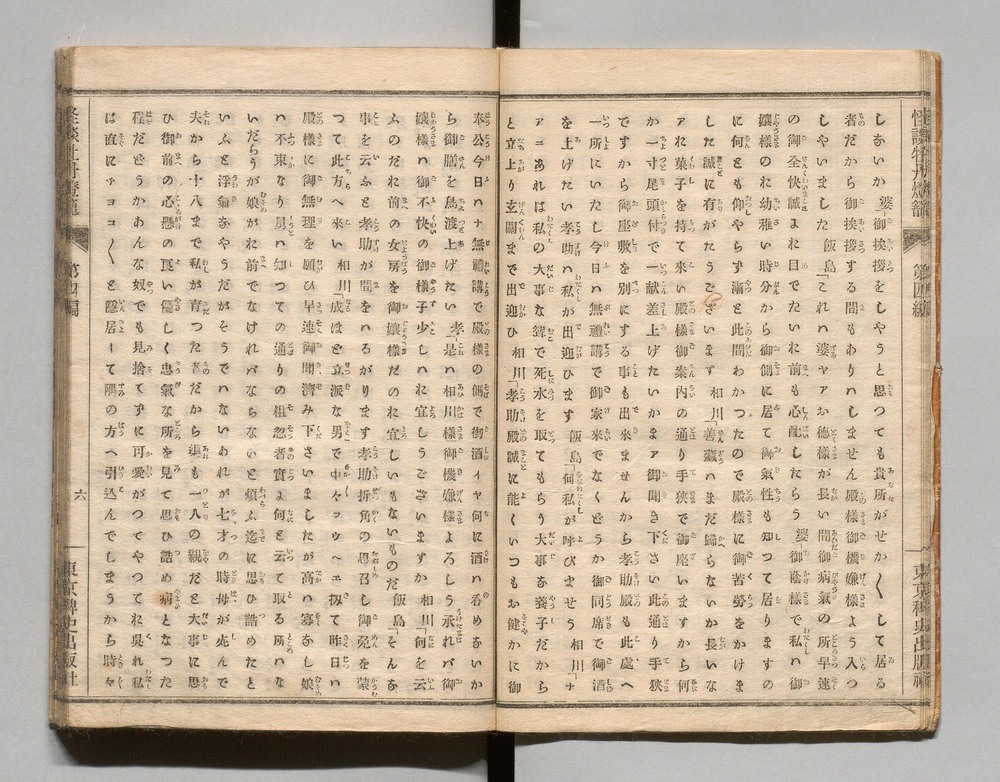 怪談牡丹燈籠 第四編 東京稗史出版社
しないか 婆「御挨拶をしやうと思つても貴所がせか〱して居る
者だから御挨拶する間もありハしません殿様御機嫌様よう入つ
しやいました 飯島「これハ婆ヤアお徳様が長い間御病氣の所早速
の御全快誠にお目でたいお前も心配したらう 婆「御蔭様で私ハ御
嬢様のお幼稚い時分から御側に居て御氣性も知つて居りますの
に何とも仰やらず漸と此間わかつたので殿様に御苦勞をかけま
した誠に有がたうございます 相川「善藏ハまだ歸らないか長いな
アお菓子を持て來い殿様御案内の通り手狹で御座いますから何
か一寸尾頭付で一献差上げたいがまアお聞き下さい此通り手狹
ですから御座敷を別にする事も出來ませんから孝助殿も此處へ
一所にいたし今日ハ無禮講で御家來でなくどうか御同席で御酒
を上げたい孝助ハ私が出迎ひます 飯島「何私が呼びませう 相川「ナ
アニあれは私の大事な聟で死水を取てもらう大事な養子だから
と立上り玄關まで出迎ひ 相川「孝助殿誠に能くいつもお健かに御
奉公今日ハナ無禮講で殿様の側で御酒イヤ何に酒ハ呑めないか
ら御膳を鳥渡上げたい 孝「是ハ相川様御機嫌様よろしう承れバ御
嬢様ハ御不快の御様子少しハお宜しうございますか 相川「何を云
ふのだお前の女房を御嬢様だのお宜しいもないものだ 飯島「そんな
事を云ふと孝助が間をハるがります孝助折角の思召し御免を蒙
つて此方へ來い 相川「成ほど立派な男で中々フウヘエ扨て昨日ハ
殿様に御無理を願ひ早速御聞濟み下さいましたが高ハ寡なし娘
ハ不束なり舅ハ知つての通りの粗忽者實に何と云て取る所ハな
いだらうが娘がお前でなけれバならないと煩ふ迄に思ひ詰めたと
いふと浮氣なやうだがそうでハないあれが七才の時母が死んで
夫から十八まで私が育つた者だから連も一人の親だと大事に思
ひ御前の心懸の宜い優しく忠氣な所を見て思ひ詰め病となつた
程だどうかあんな奴でも見捨てずに可愛がつてやつてお呉れ私
は直にチョコ〱と隱居して隅の方へ引込んでしまうから時々
怪談牡丹燈籠 第四編 六 東京稗史出版社